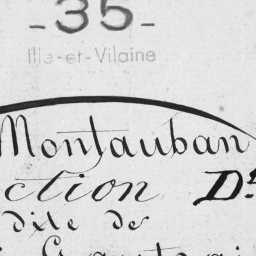 -35-
Ille-et-Vilaine
Montauban
ction D.
dite de